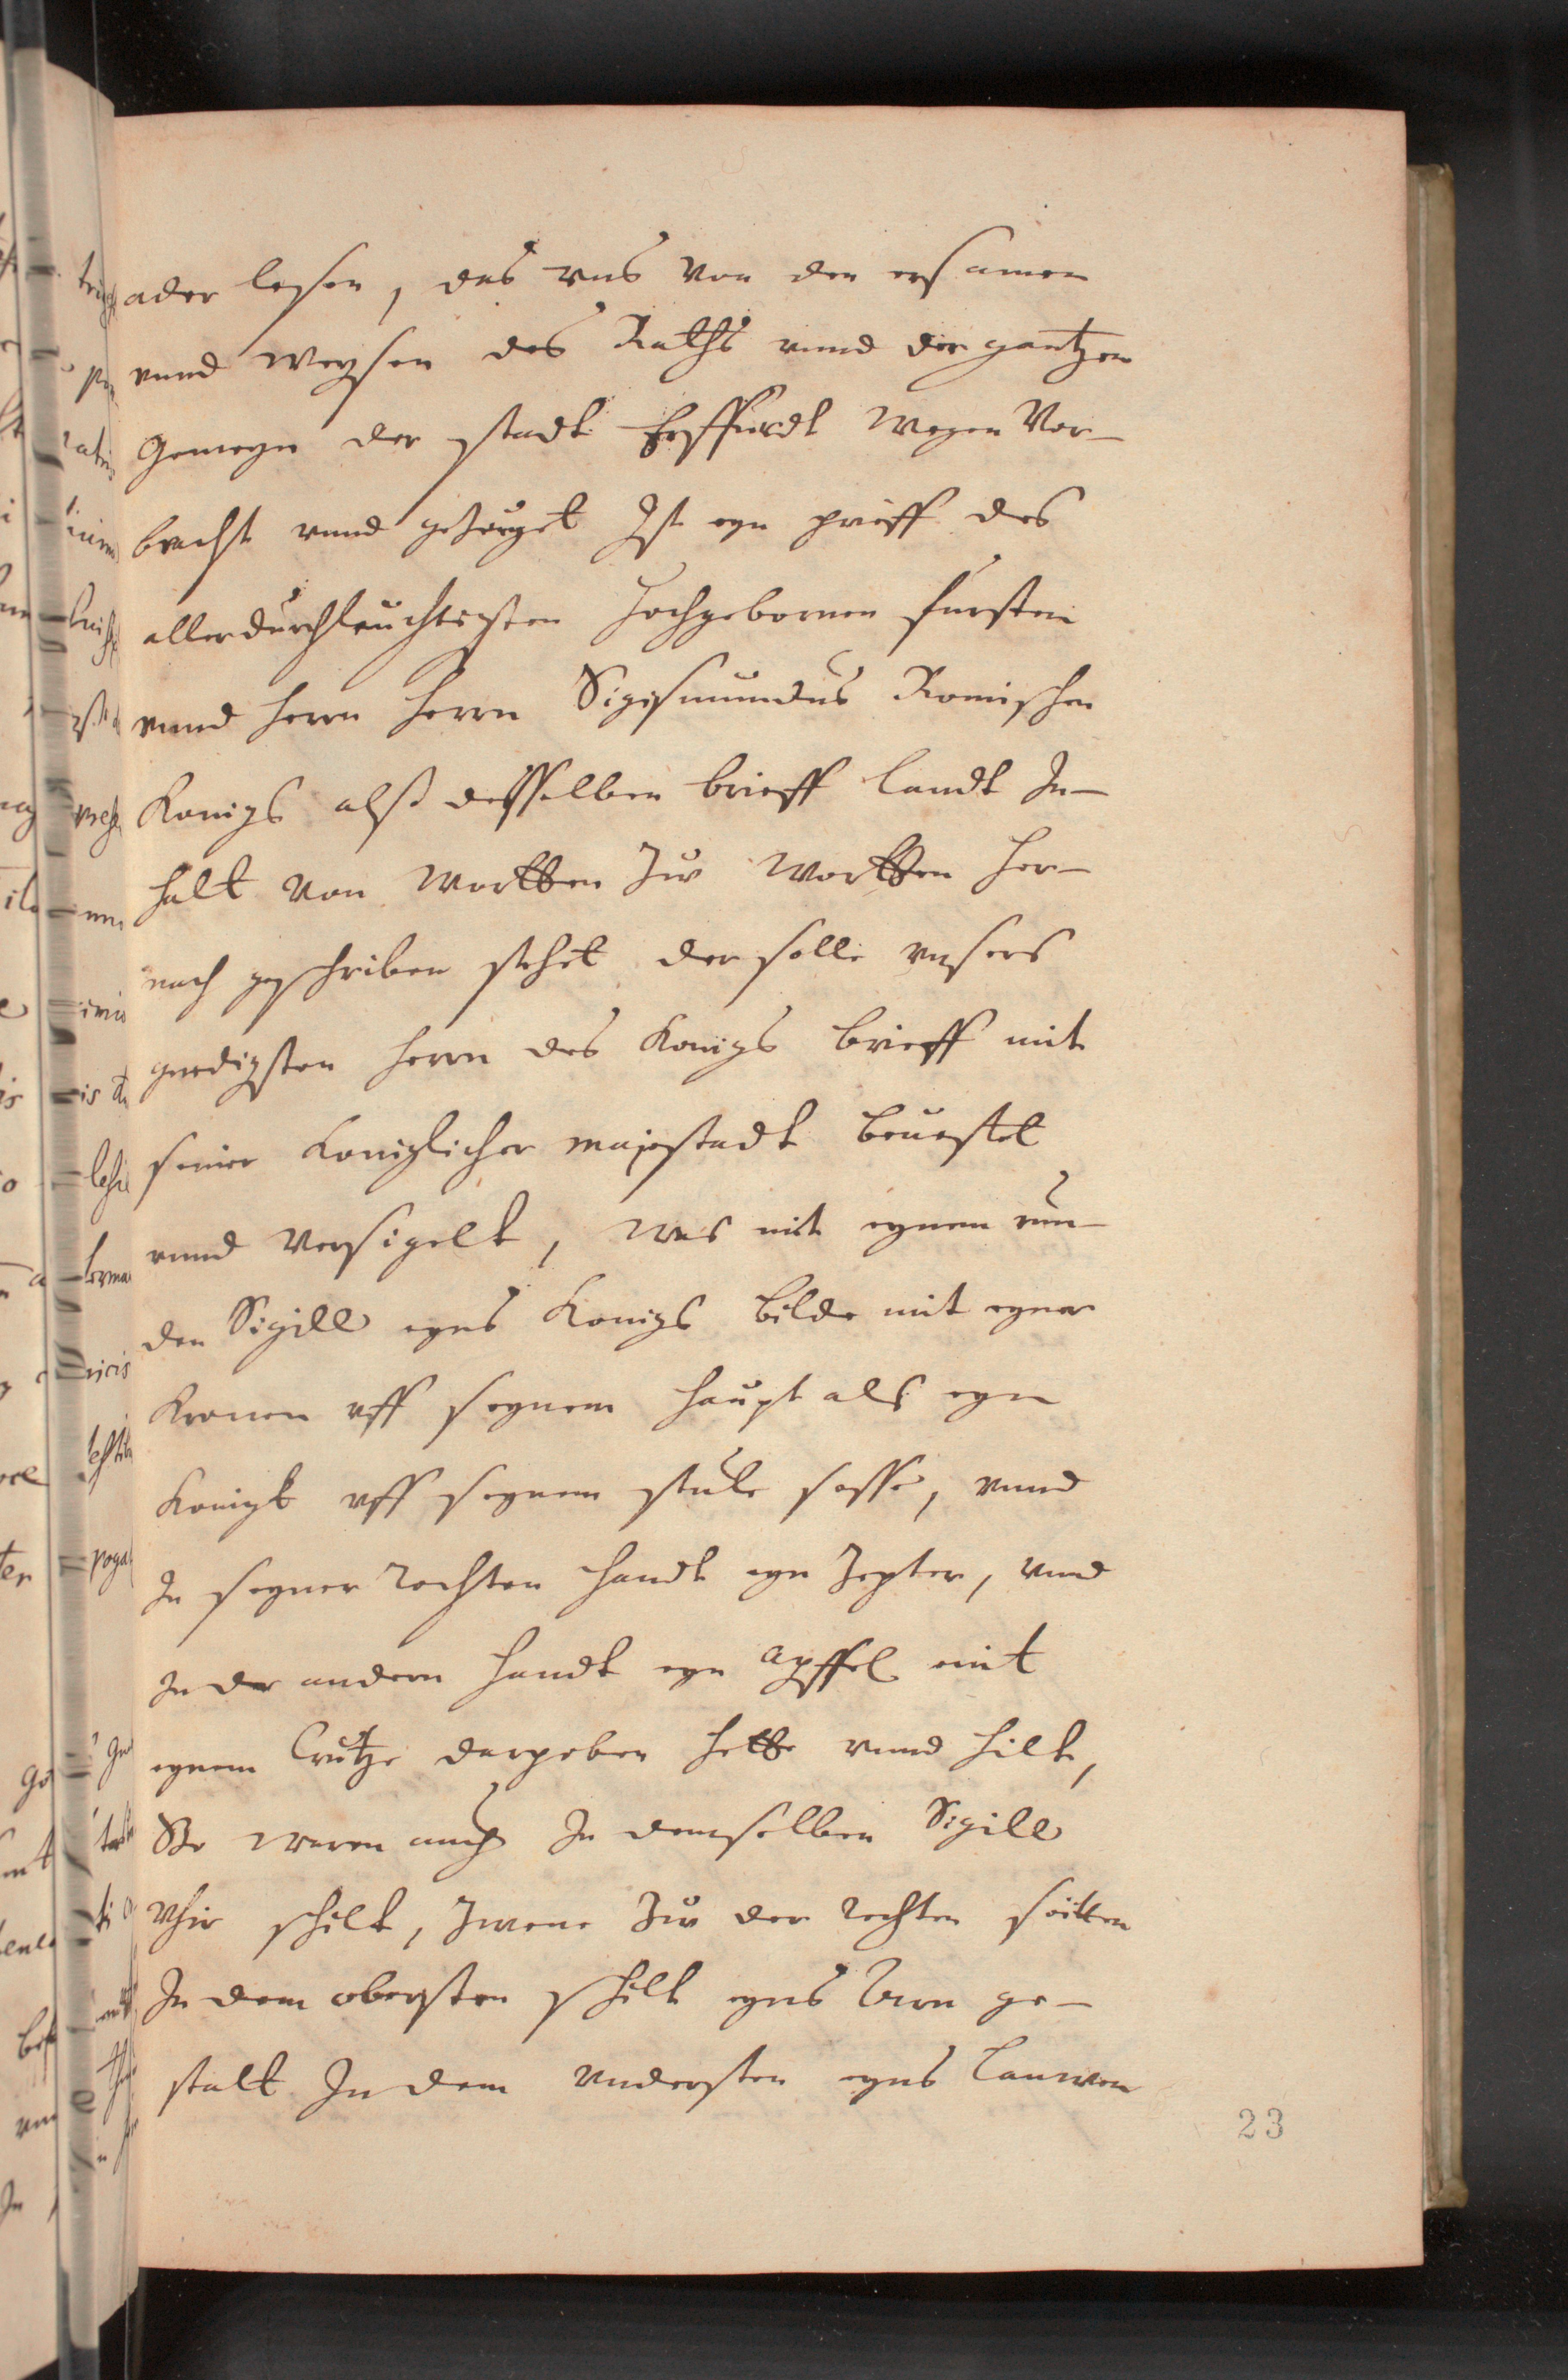 ader lesen, das vns von den ersamen
vnnd weysen des Raths vnnd der gantzen
Gemeyn der stadt Erffurdt wegen vor-
bracht vnnd getzeuget Ist eyn prieff des
allerdurchleuchtigsten Hochgebornen fursten
vnnd herrn herrn Sigismundus Romischen
Konigs alß desselben brieff laudt In-
halt von wortten zu wortten her-
nach geschriben stehet derselbe vnsers
gnedigsten herrn des Konigs brieff mit
seiner Koniglicher majestadt beuestet
vnnd versigelt, was mit eynem run-
den Sigill eyns Konigs bilde mit eyner
Kronen vff seynem haupt als eyn
Konigk vff seynem stule sesse, vnnd
In seyner rechten handt eyn Zepter, vnnd
In der andern handt eyn apffel mit
eynem Crutze dargeben hette vnnd hilt,
So waren auch In demselben Sigill
vhir schilt, zwene zu der rechten seitten
In dem obersten schilt eyns Arn ge-
stalt In dem vndersten eyns lauwen
23